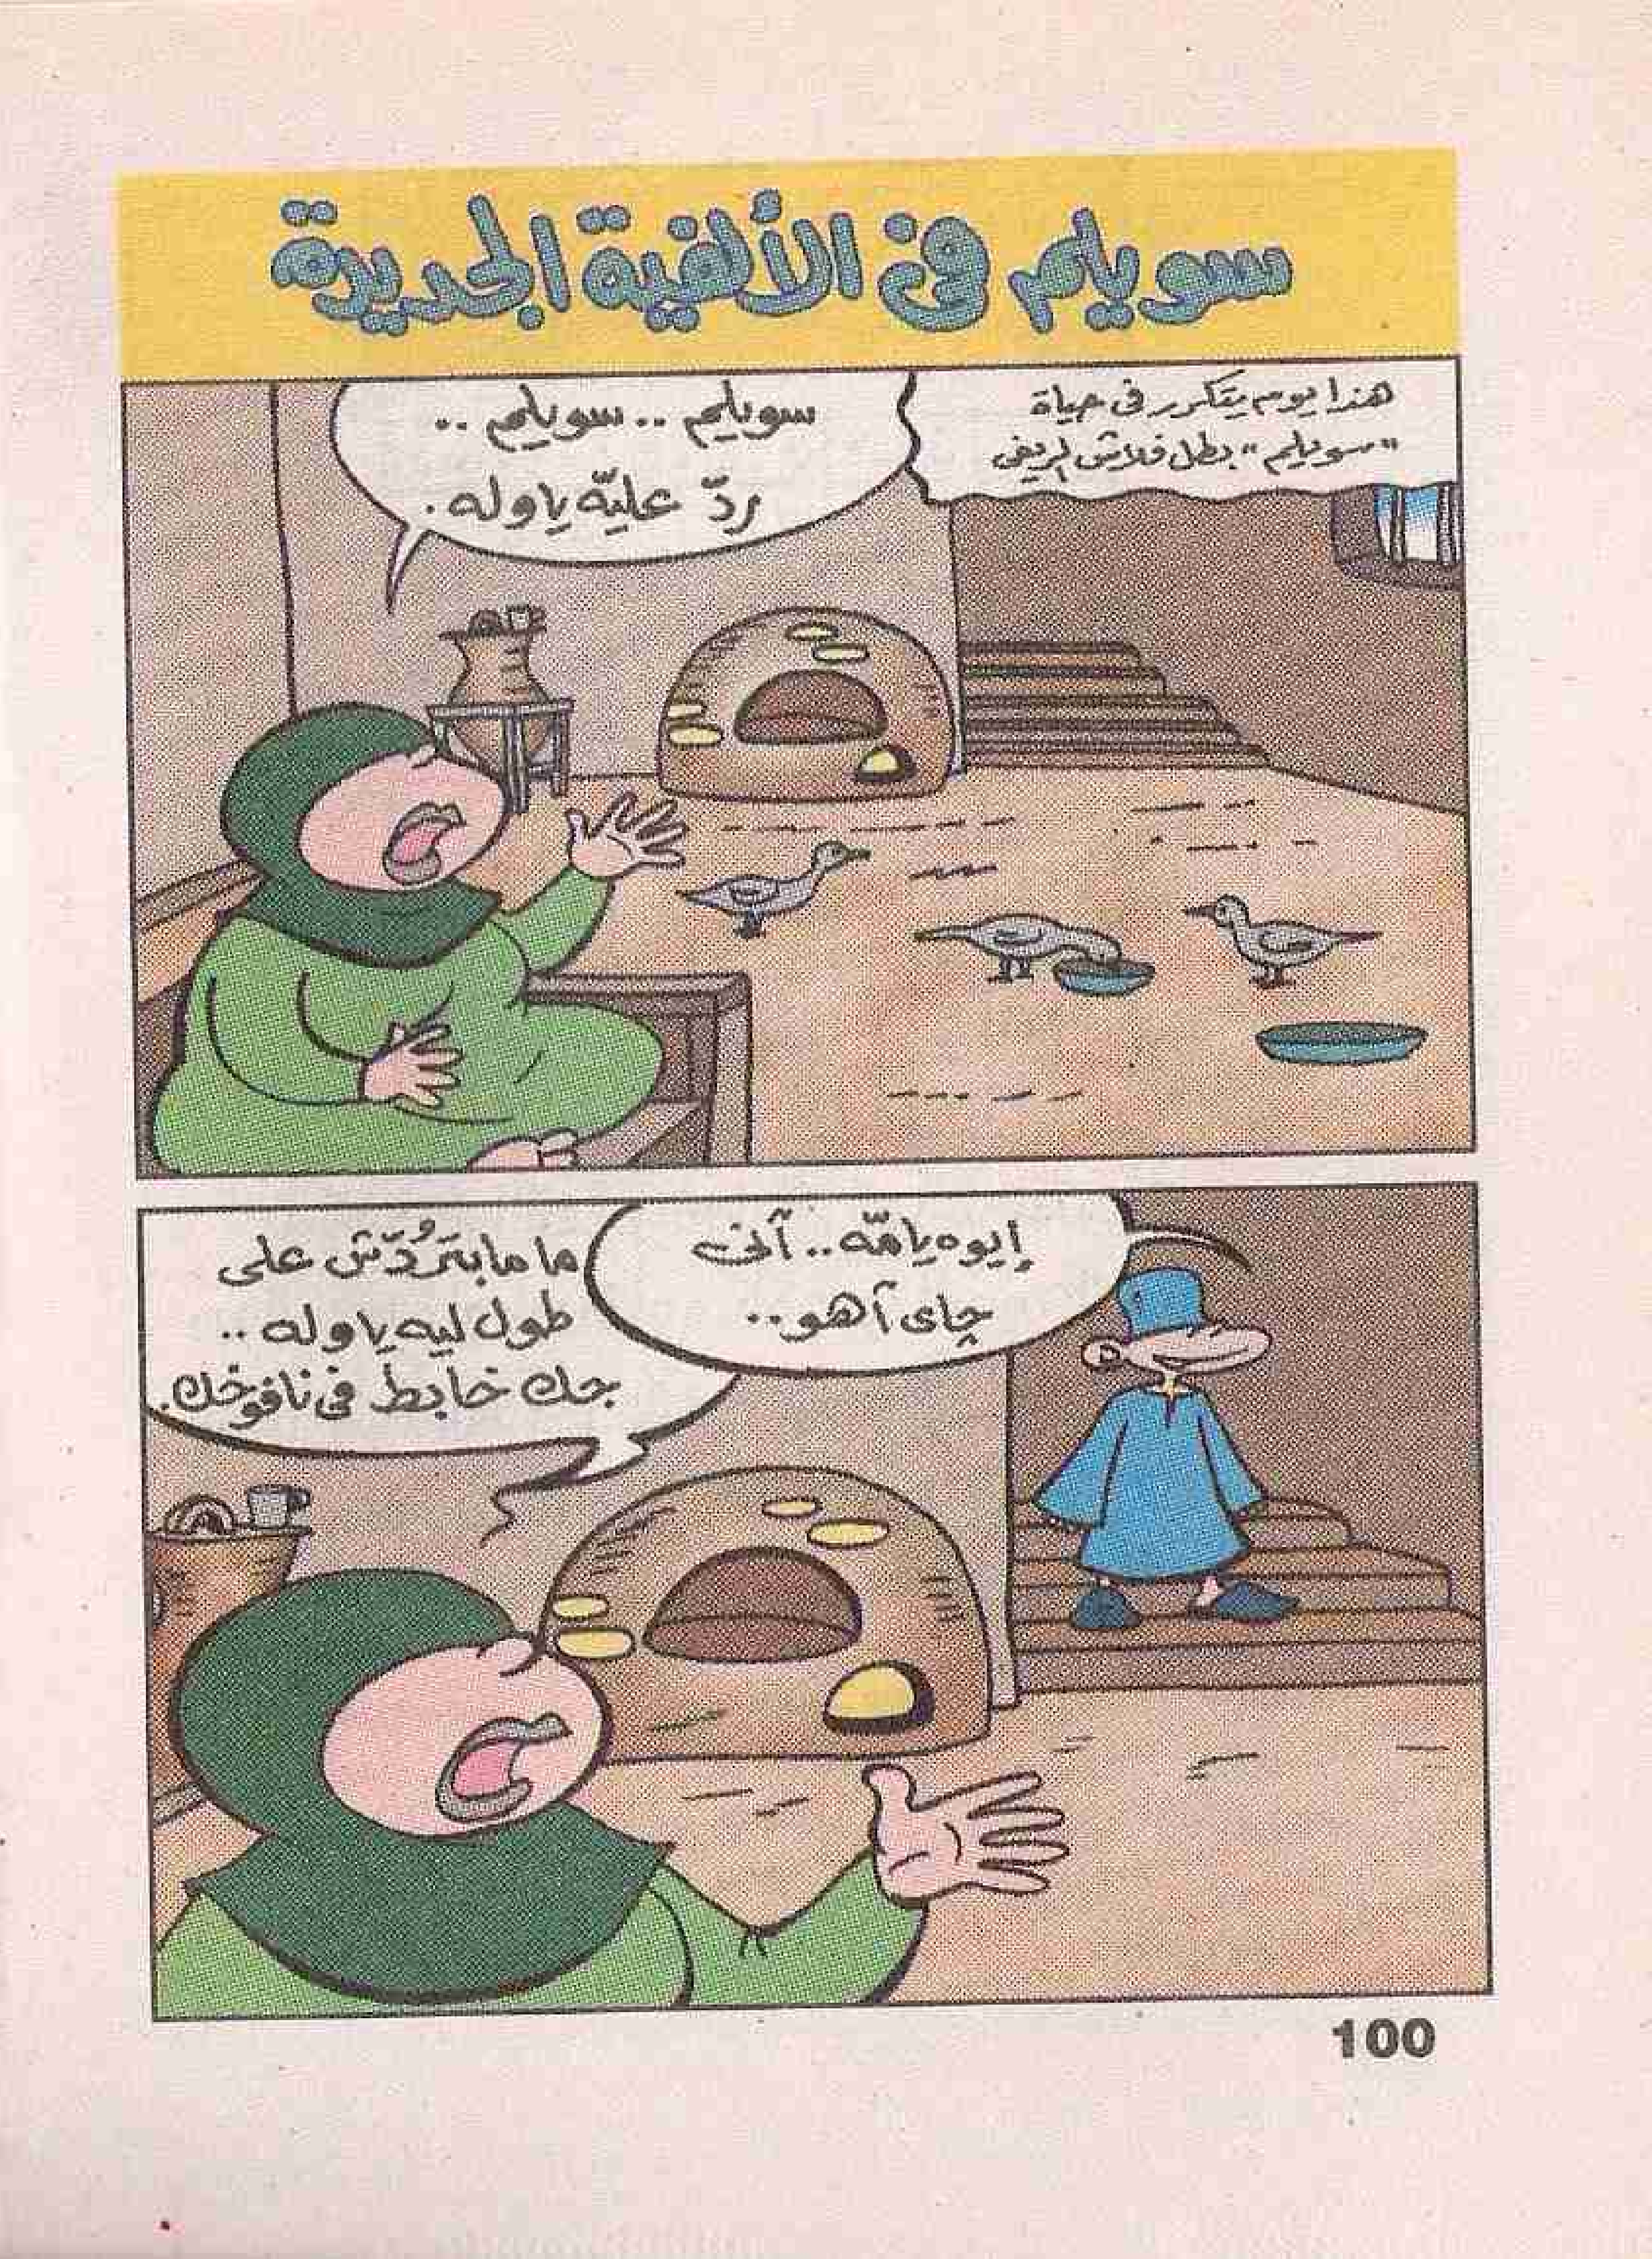 سويلم فى الألفية الجديدة
هذا يوم يتكرر فى حياة
"سويلم" بطل فلاش الريفى
سويلم .. سويلم ..
ردّ عليّه ياوله .
إيوه يامّه .. آنى
چاى آهو ..
ما ما بترُدّش على
طول ليه ياوله ..
جك خابط فى نافوخك.
100